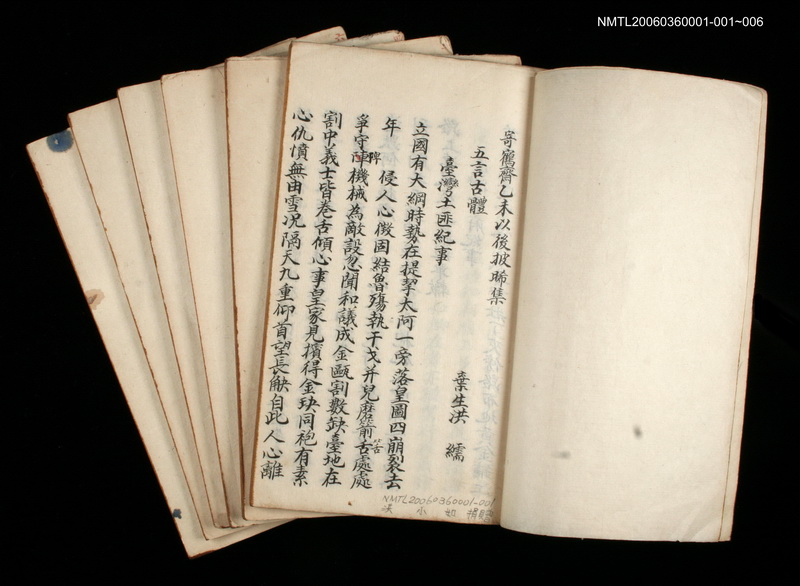 NMTL20060360001-001~006
寄鶴齋乙未以後披晞集
五言古體
臺灣土匪紀事
棄生洪繻
立國有大綱時勢在提挈太阿一旁落皇圖四崩裂去
年 侵人心儌固結魯殤執干戈并兒磨箭舌處處
筈
爭守陣機械為敵設忽聞和議成金甌割數缺臺地在
陴
割中義士皆卷舌傾心事皇家見擯得金玦同袍有素
心仇憤無由雪况隔天九重仰首望長觖自此人心離
NMTL20060360001-001
吳小如捐贈